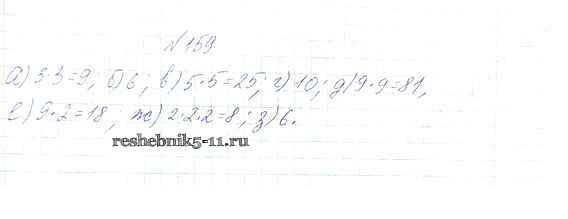 №159
а) 3·3=9, б) 6; в) 5·5=25, г) 10; д) 9·9=81,
е) 9·2=18; ж) 2·2·2=8; з) 6.
reshebnik5-11.ru